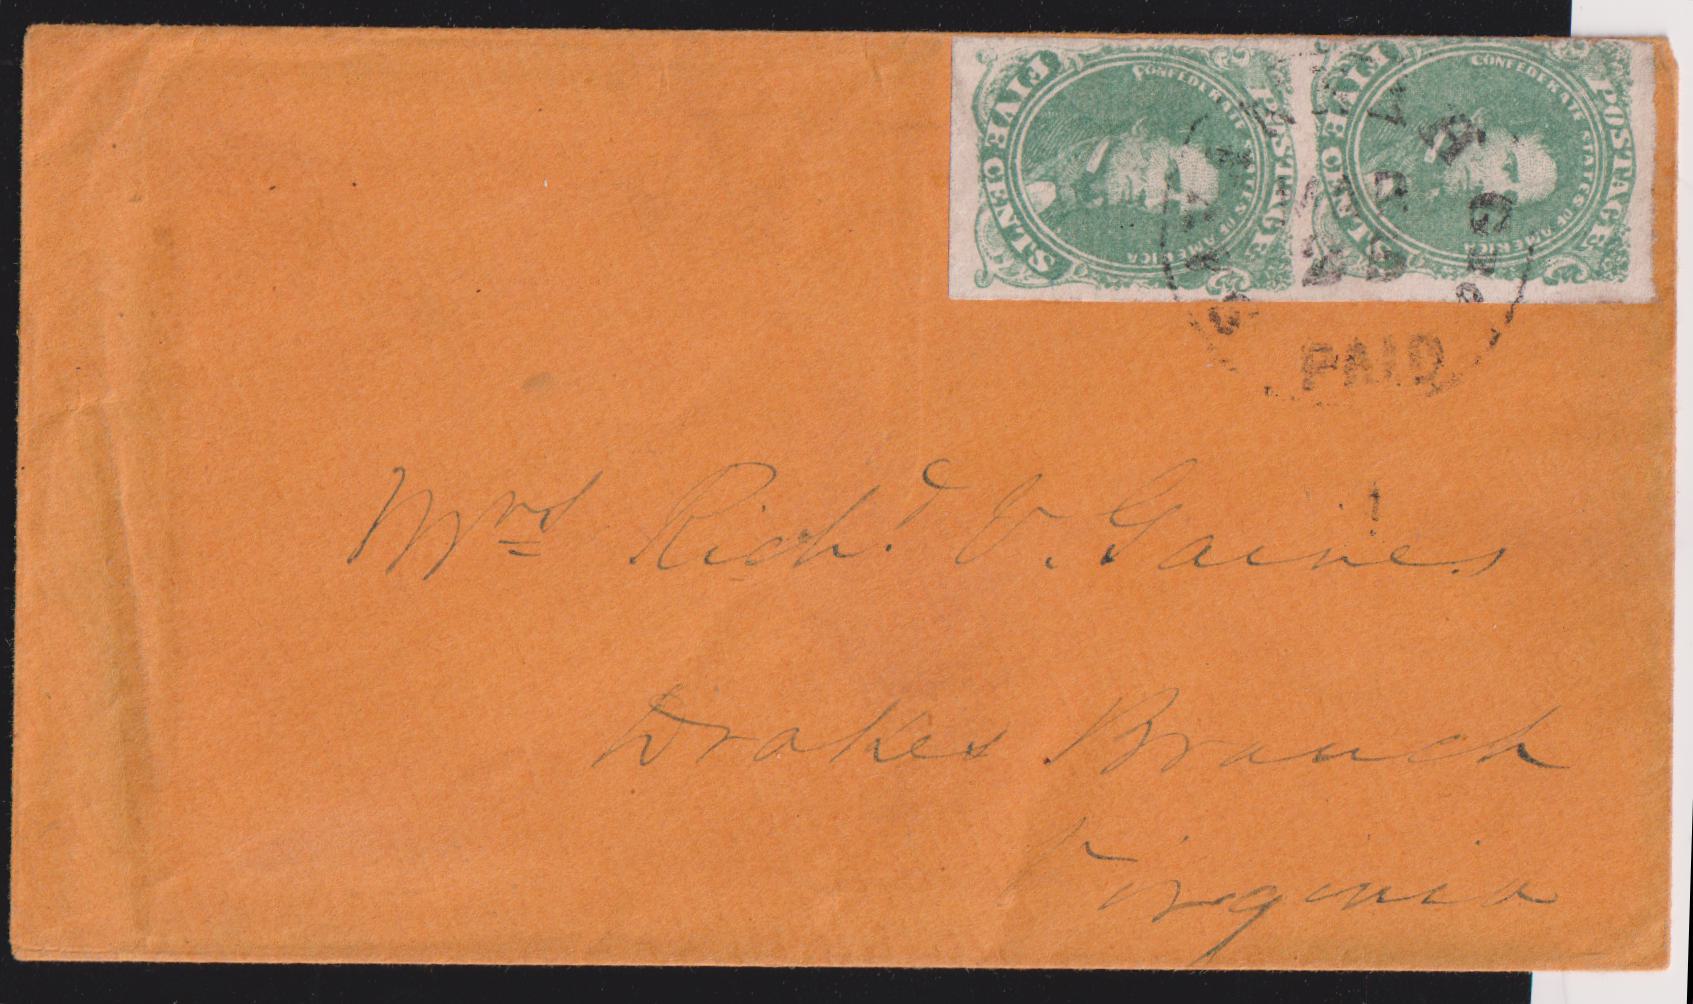 FIVE CENTS
POSTAGE
CONFEDERATE STATES OF AMERICA
FIVE CENTS
POSTAGE
CONFEDERATE STATES OF AMERICA
25
PAID
Mrs Richd. V. Gaines
Drakes Branch
Virginia